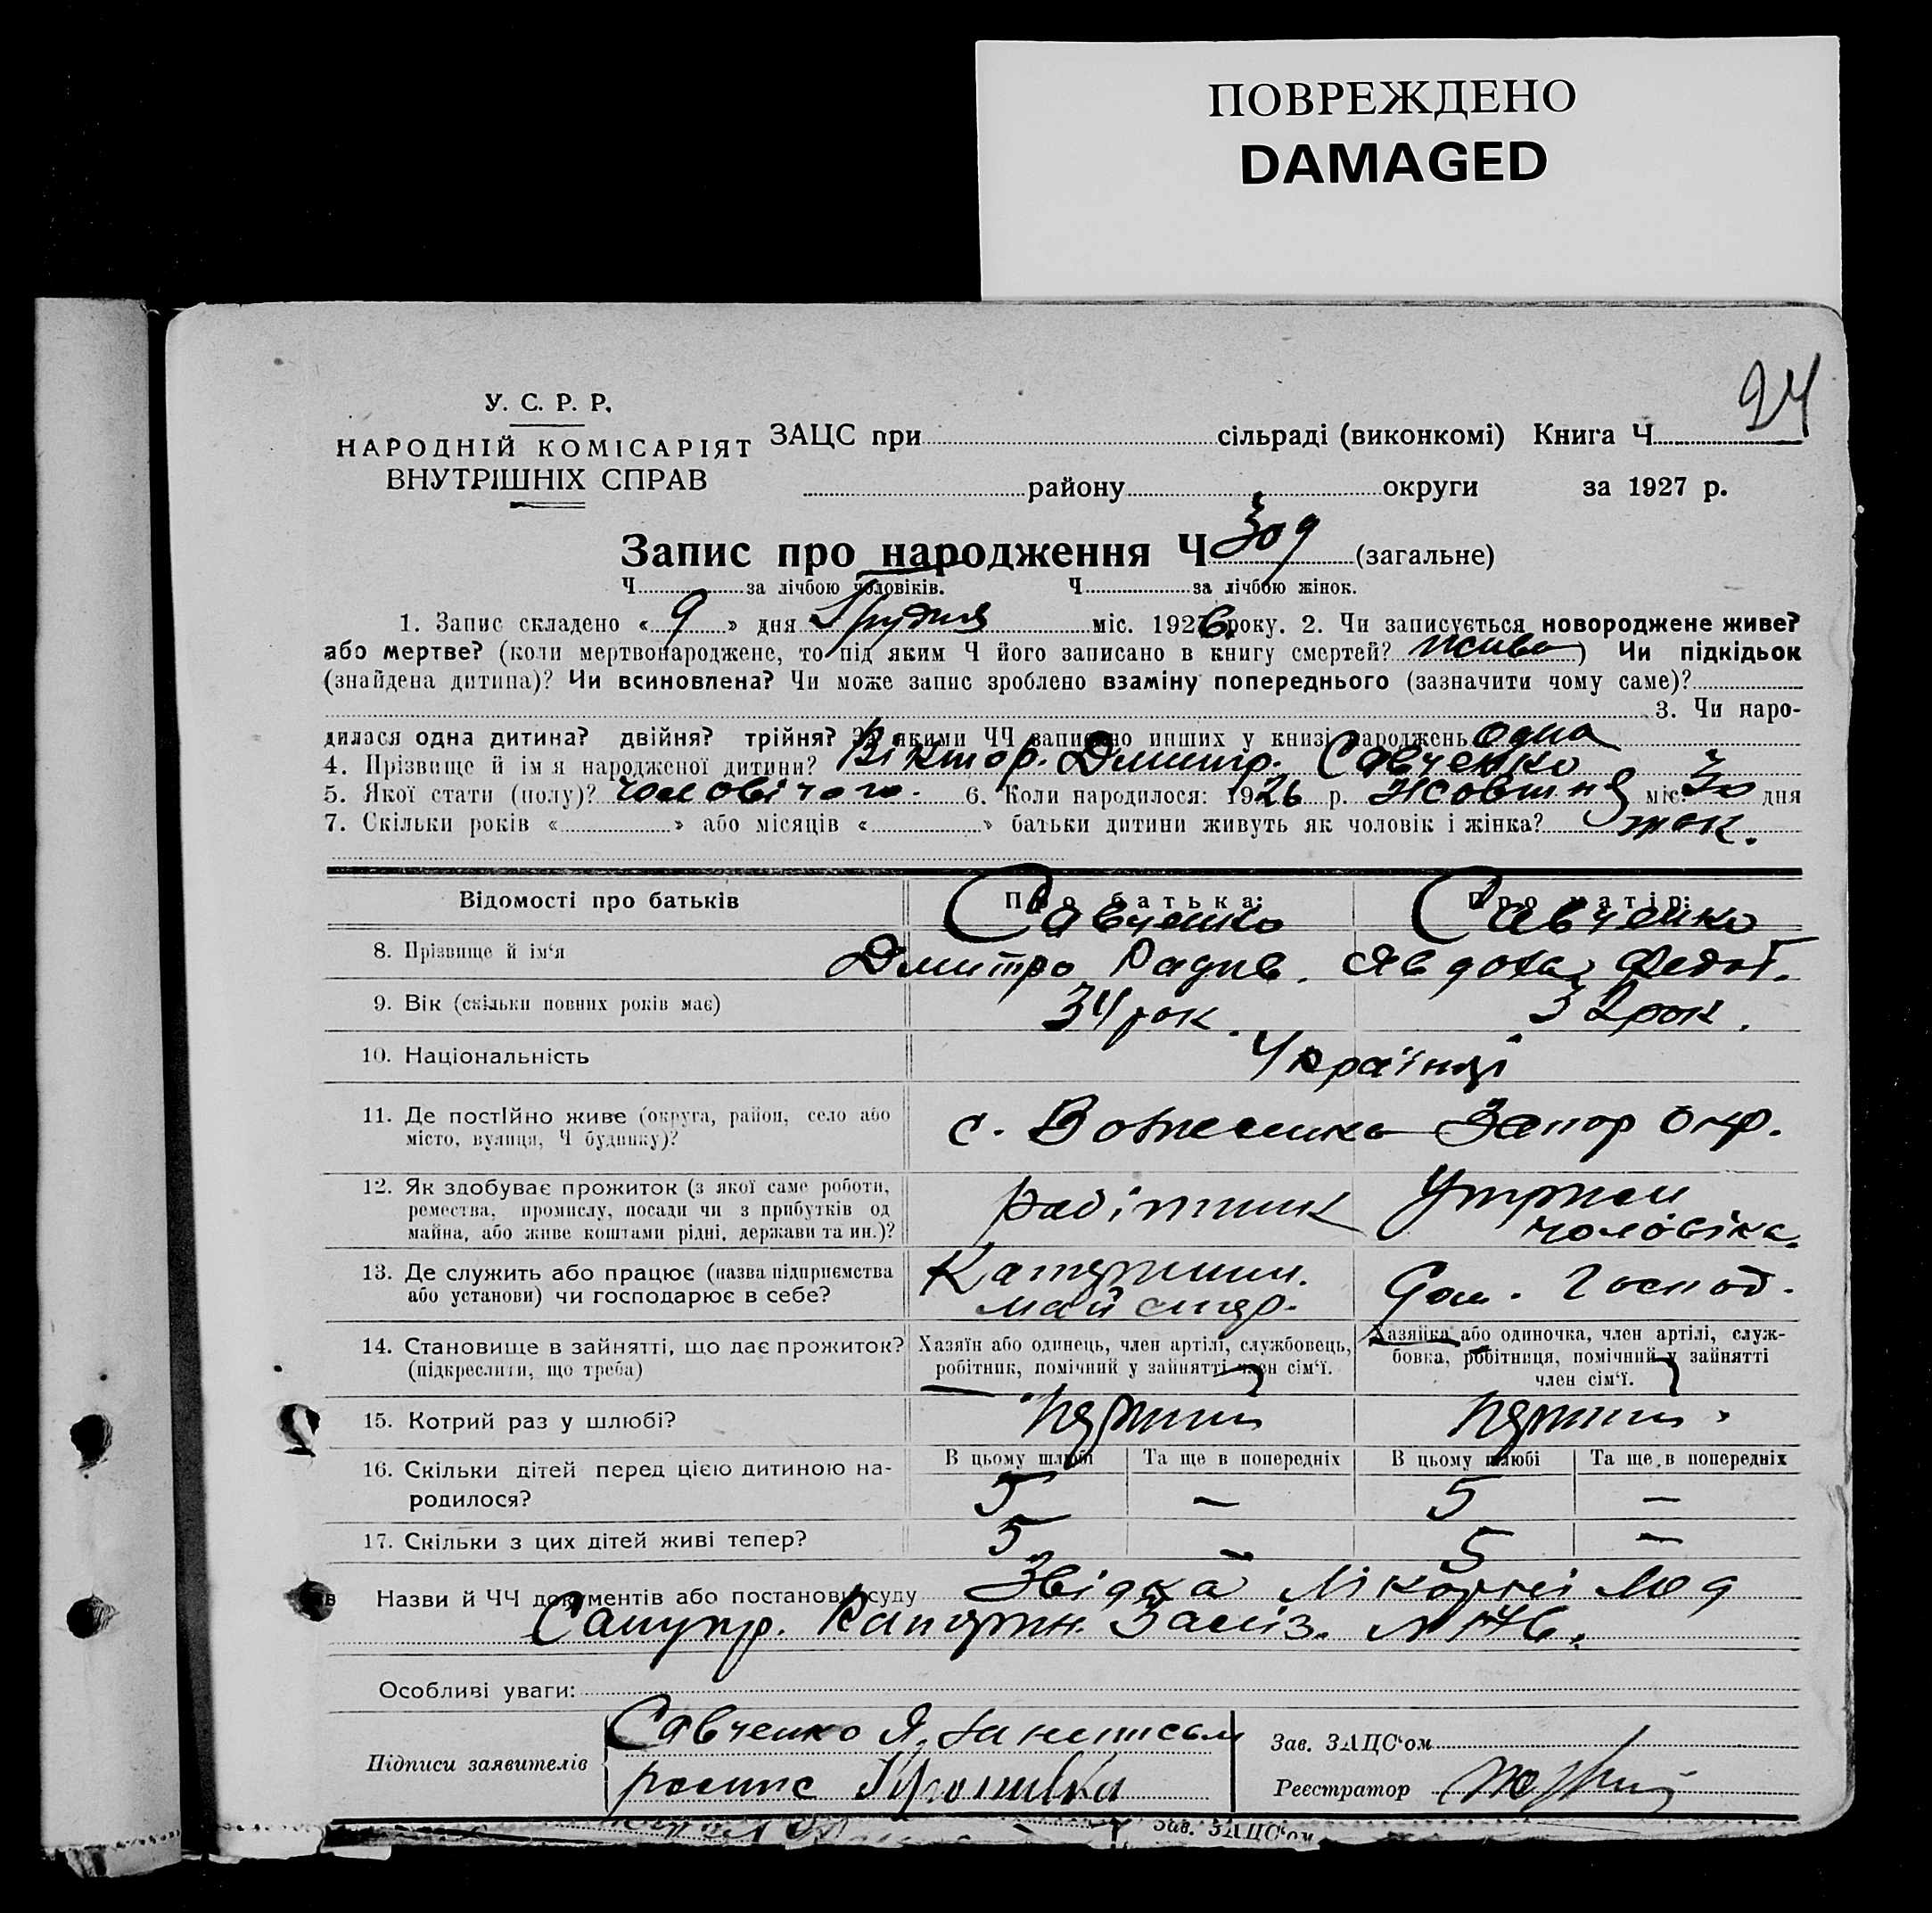 ПОВРЕЖДЕНО
DAMAGED
24
У. С. Р. Р.
НАРОДНІЙ КОМІСАРІЯТ
ВНУТРІШНІХ СПРАВ
ЗАЦС при сільраді (виконкомі) Книга Ч
району округи за 1927 р.
Запис про народження Ч 309 (загальне)
Ч за лічбою чоловіків. Ч за лічбою жінок.
1. Запис складено « 9 » дня Грудня міс. 1926 року. 2. Чи записується новороджене живе?
або мертве? (коли мертвонароджене, то під яким Ч його записано в книгу смертей? живе) Чи підкідьок
(знайдена дитина)? Чи всиновлена? Чи може запис зроблено взаміну попереднього (зазначити чому саме)?
3. Чи наро-
дилася одна дитина? двійня? трійня? За якими ЧЧ записано инших у книзі народжень одна
4. Прізвище й ім'я народженої дитини? Віктор. Дмитр. Савченко
5. Якої стати (полу)? Чоловічого. 6. Коли народилося: 1926 р. Жовтня міс. 30 дня
7. Скільки років « » або місяців « » батьки дитини живуть як чоловік і жінка? так.
Відомості про батьків Про батька: Про матір:
Савченко Савченко
8. Прізвище й ім'я Дмитро Радив. Явдоха Федот.
9. Вік (скільки повних років має) 34 рок. 32 рок.
10. Національність Українці
11. Де постійно живе (округа, район, село або
місто, вулиця, Ч будинку)? с. Вознесенка Запор окр.
12. Як здобуває прожиток (з якої саме роботи,
ремества, промислу, посади чи з прибутків од
майна, або живе коштами рідні, держави та ин.)?
робітник Утрим чоловіка.
13. Де служить або працює (назва підприємства
або установи) чи господарює в себе?
Катеринин. майстер. Дом. Господ.
14. Становище в зайнятті, що дає прожиток?
(підкреслити, що треба)
Хазяїн або одинець, член артілі, службовець,
робітник, помічний у зайнятті член сім'ї.
Хазяйка або одиночка, член артілі, служ-
бовка, робітниця, помічний у зайнятті
член сім'ї.
15. Котрий раз у шлюбі? перший перший.
16. Скільки дітей перед цією дитиною на-
родилося?
В цьому шлюбі Та ще в попередніх В цьому шлюбі Та ще в попередніх
5 — 5 —
17. Скільки з цих дітей живі тепер? 5 — 5 —
Назви й ЧЧ документів або постанови суду Звідка Лікарні Мед
Санупр. Катерин. Заліз. № 1746.
Особливі уваги:
Підписи заявителів
Савченко Я.
Зав. ЗАЦС'ом
Реєстратор
Зав. ЗАЦС'ом